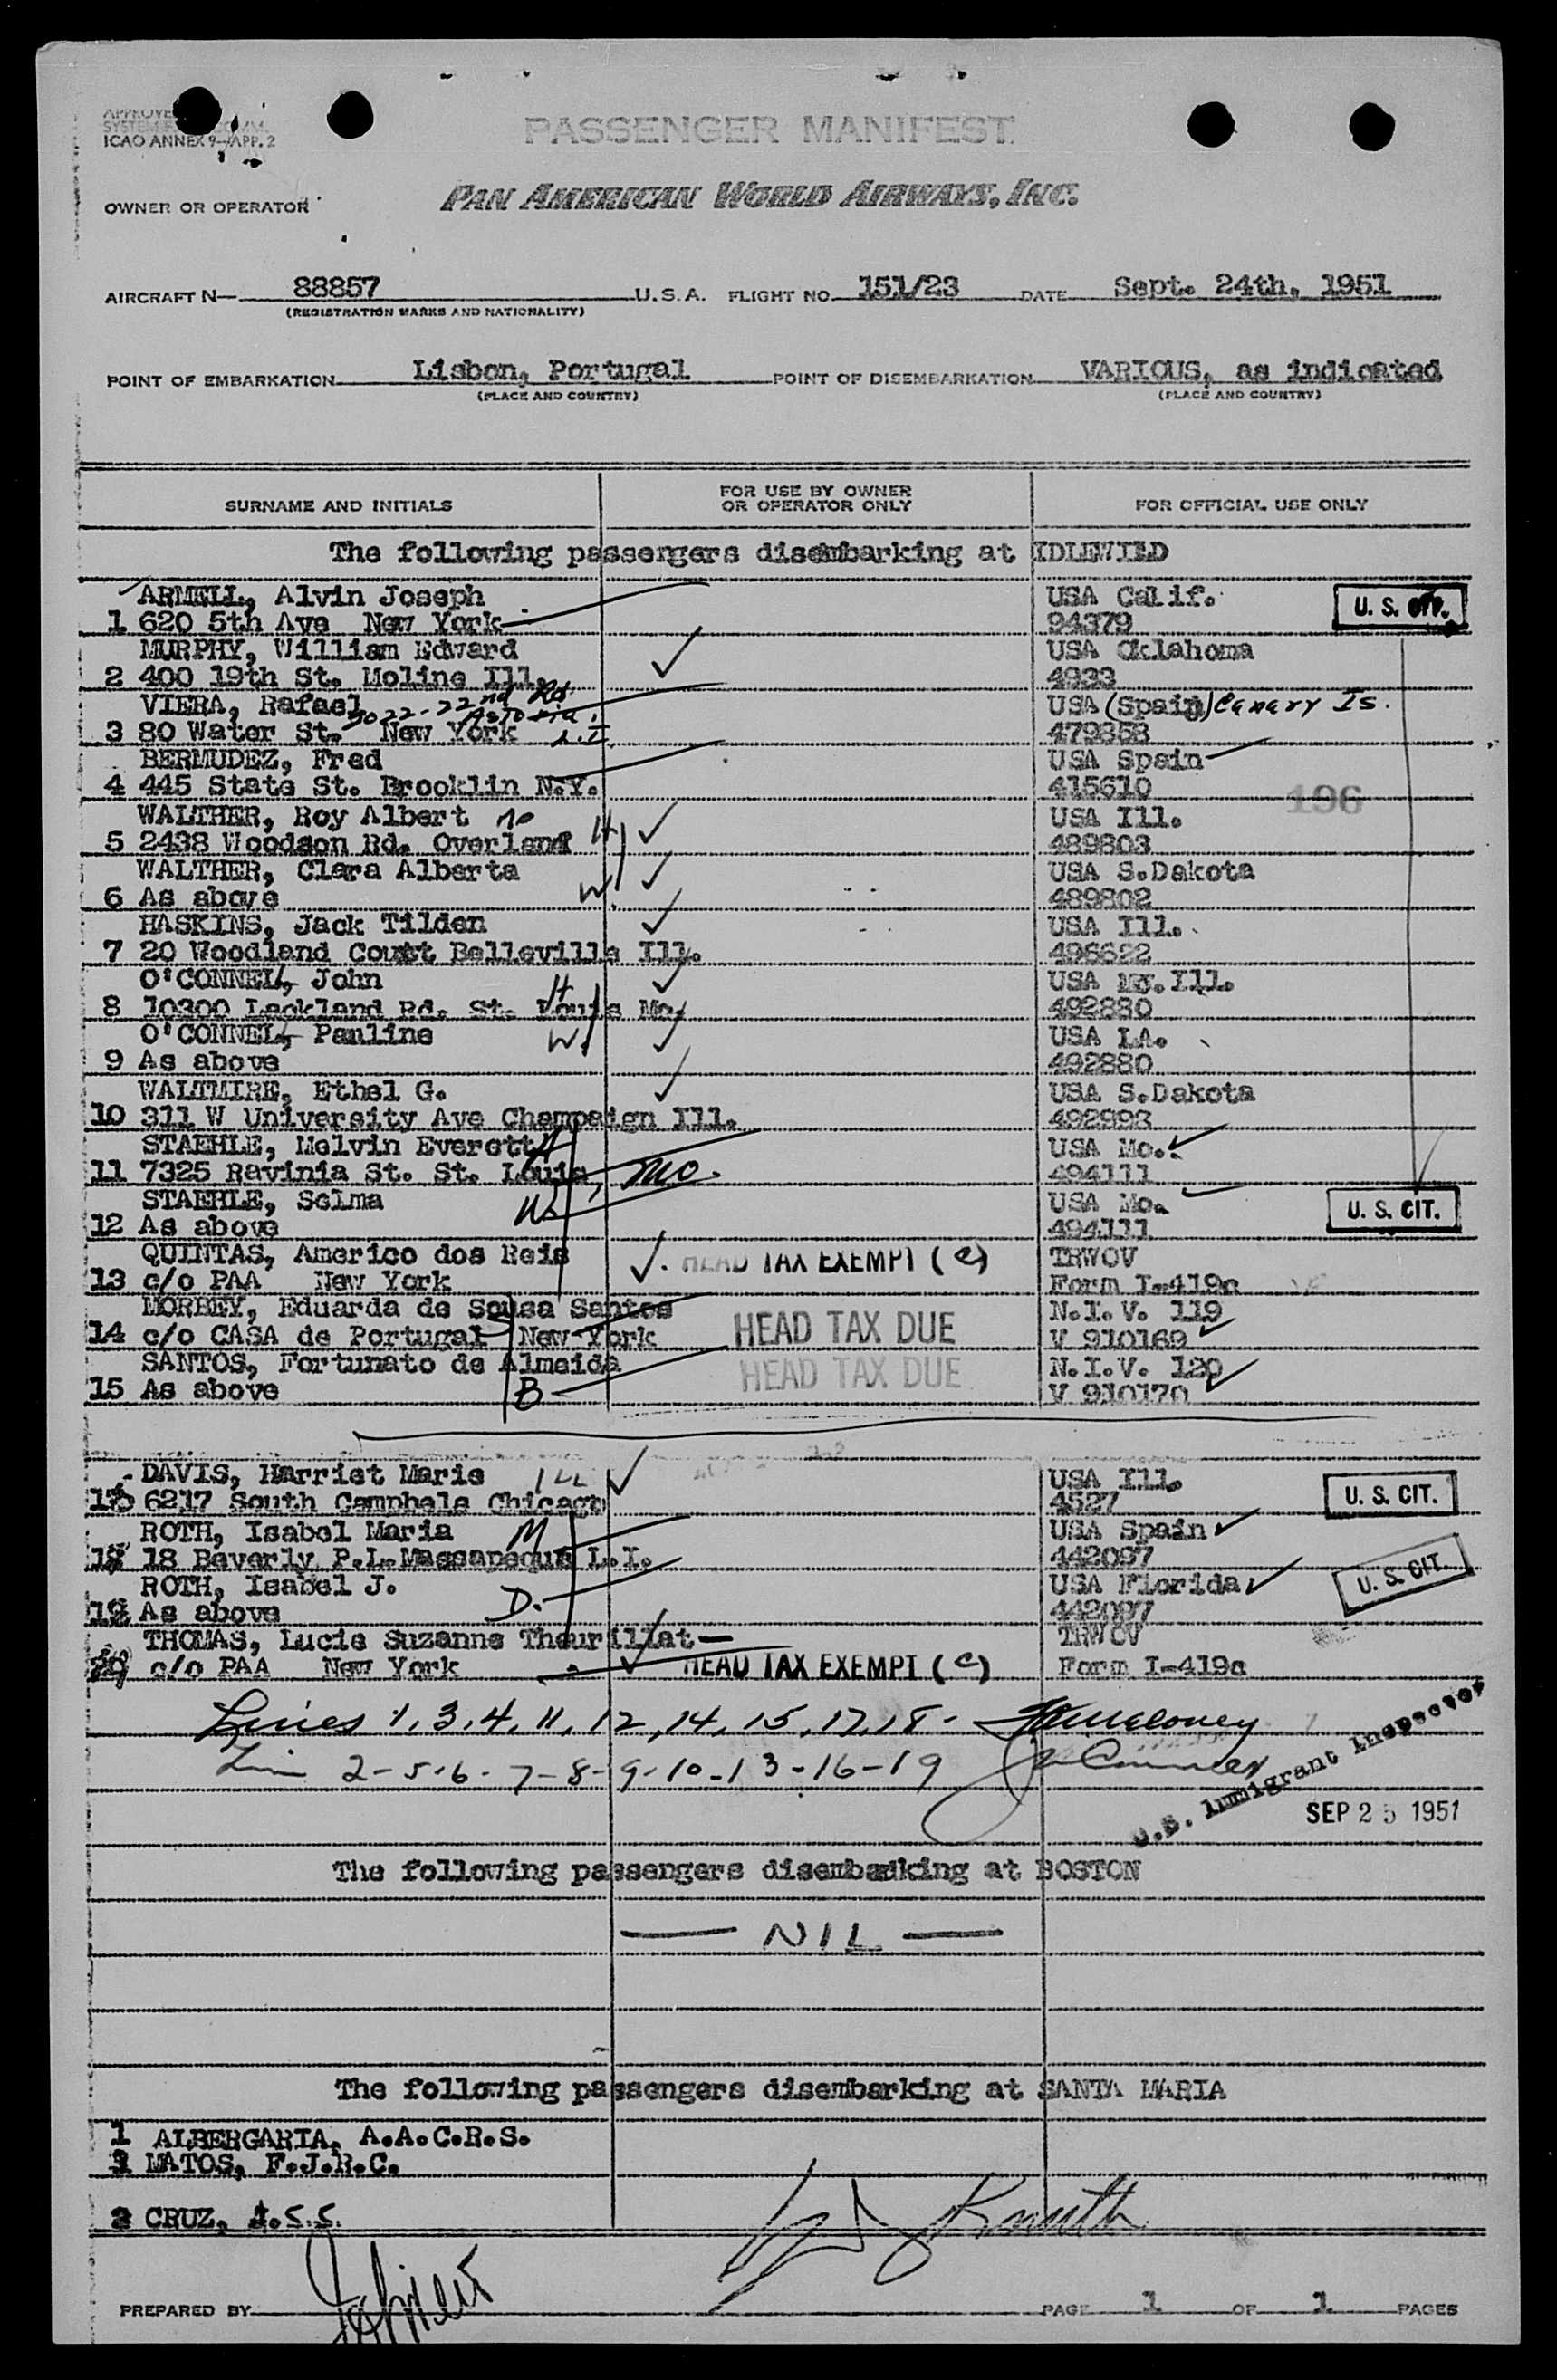 PASSENGER MANIFEST
ICAO ANNEX 9—APP. 2
OWNER OR OPERATOR PAN AMERICAN WORLD AIRWAYS, INC.
AIRCRAFT N— 88857 U.S.A. FLIGHT NO. 151/23 DATE Sept. 24th, 1951
(REGISTRATION MARKS AND NATIONALITY)
POINT OF EMBARKATION Lisbon, Portugal POINT OF DISEMBARKATION VARIOUS, as indicated
(PLACE AND COUNTRY) (PLACE AND COUNTRY)
SURNAME AND INITIALS FOR USE BY OWNER OR OPERATOR ONLY FOR OFFICIAL USE ONLY
The following passengers disembarking at IDLEWILD
ARMELL, Alvin Joseph USA Calif. U. S. CIT.
1 620 5th Ave New York 94379
MURPHY, William Edward USA Oklahoma
2 400 19th St. Moline Ill. 4933
VIERA, Rafael 3022-22nd Rd Astoria, L.I. USA (Spain) Canary Is.
3 80 Water St. New York 479858
BERMUDEZ, Fred USA Spain
4 445 State St. Brooklin N.Y. 415610
196
WALTHER, Roy Albert Mo H USA Ill.
5 2438 Woodson Rd. Overland 489803
WALTHER, Clara Alberta USA S.Dakota
6 As above W 489802
HASKINS, Jack Tilden USA Ill.
7 20 Woodland Court Belleville Ill. 496622
O'CONNELL, John H USA Ill.
8 10300 Lackland Rd. St. Louis Mo. 492880
O'CONNELL, Pauline W USA LA.
9 As above 492880
WALTMIRE, Ethel G. USA S.Dakota
10 311 W University Ave Champaign Ill. 492993
STAEHLE, Melvin Everett H USA Mo.
11 7325 Ravinia St. St. Louis, Mo. 494111
STAEHLE, Selma W USA Mo. U. S. CIT.
12 As above 494111
QUINTAS, Americo dos Reis HEAD TAX EXEMPT (e) TRWOV
13 c/o PAA New York Form I-419c
MORBEY, Eduarda de Sousa Santos N.I.V. 119
14 c/o CASA de Portugal S New York HEAD TAX DUE V 910169
SANTOS, Fortunato de Almeida HEAD TAX DUE N.I.V. 120
15 As above B V 910170
DAVIS, Harriet Marie Ill USA Ill. U. S. CIT.
16 6217 South Camphels Chicago 4527
ROTH, Isabel Maria M USA Spain
17 18 Beverly P.L. Massapequa L.I. 442097
ROTH, Isabel J. D. USA Florida U. S. CIT.
18 As above 442097
THOMAS, Lucie Suzanne Theurillat— TRWOV
c/o PAA New York HEAD TAX EXEMPT (e) Form I-419c
Lines 1, 3, 4, 11, 12, 14, 15, 17, 18 -
Line 2-5-6-7-8-9-10-13-16-19
U.S. Immigrant Inspector
SEP 25 1951
The following passengers disembarking at BOSTON
— NIL —
The following passengers disembarking at SANTA MARIA
1 ALBERGARIA, A.A.C.R.S.
MATOS, F.J.R.C.
CRUZ, J.S.S.
Knuth
PREPARED BY PAGE 1 OF 1 PAGES